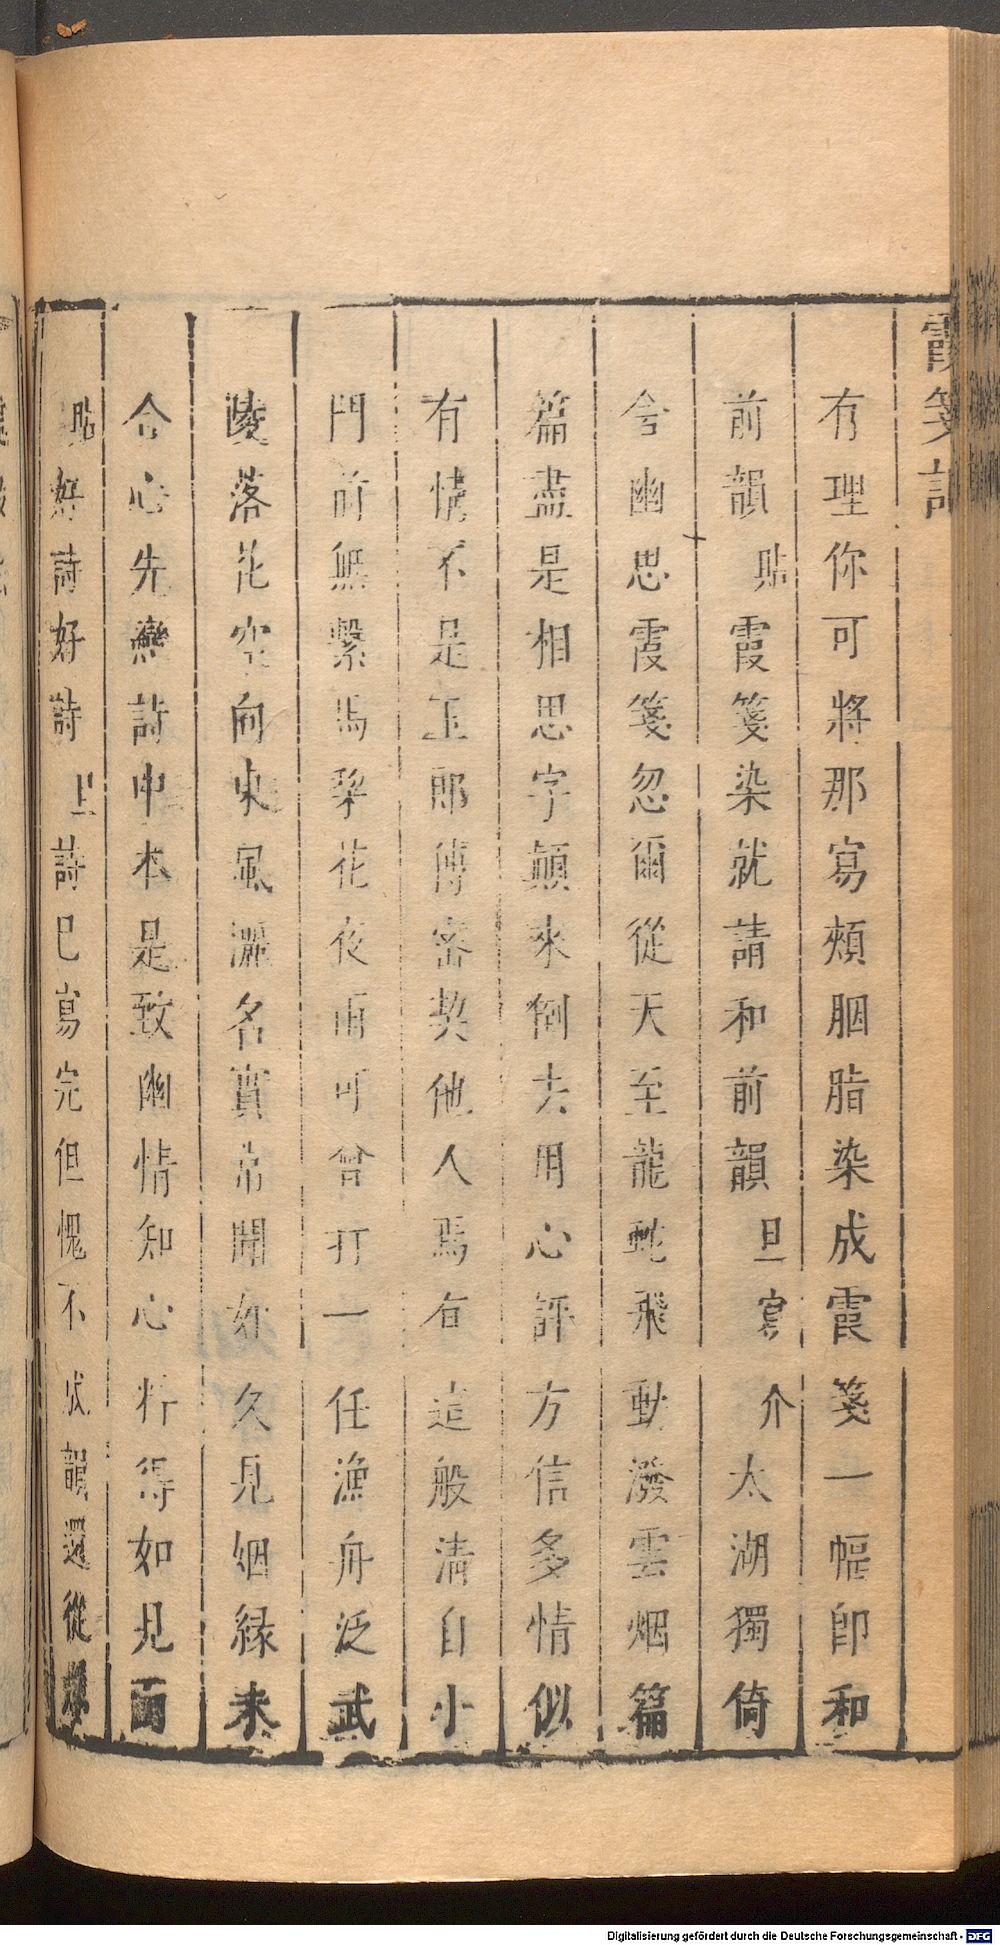 霞箋記
有理你可將那寫頰胭脂染成霞箋一幅卽和
前韻貼霞箋染就請和前韻旦寫介太湖獨倚
兮幽思霞箋忽爾從天至龍蛇飛動潑雲烟篇
篇盡是相思字顛來倒去用心評方信多情似
有情不是玉郎傳密契他人焉有這般清自小
門前無繫馬梨花夜雨可曾打一任漁舟泛武
陵落花空向東風灑名實常聞如久見姻緣未
合心先戀詩中本是致幽情知心料得如見面
貼好詩好詩旦詩已寫完但愧不成韻還從
Digitalisierung gefördert durch die Deutsche Forschungsgemeinschaft - DFG